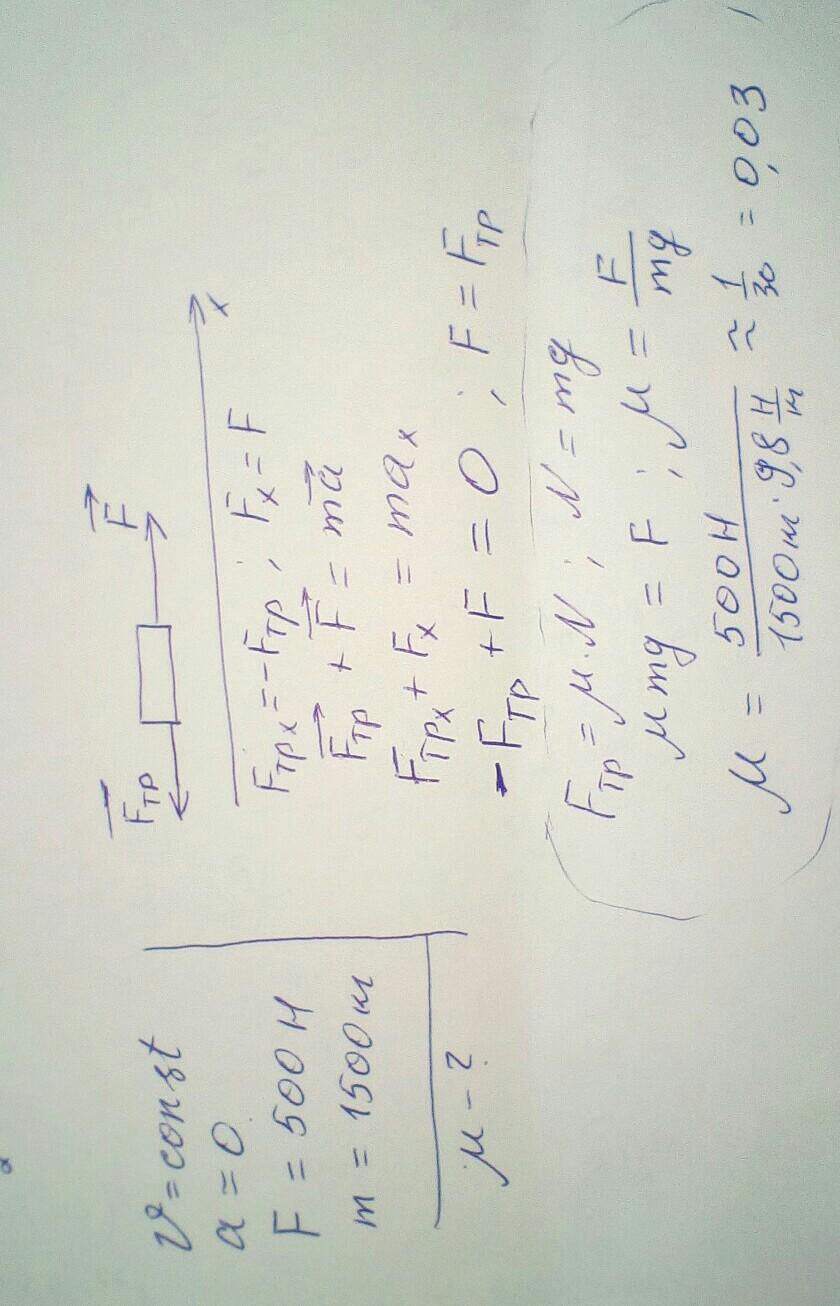 υ = const
a = 0
F = 500 Н
m = 1500 кг
μ - ?
F⃗тр F⃗
x
Fтрx = -Fтр ; Fx = F
F⃗тр + F⃗ = ma⃗
Fтрx + Fx = max
-Fтр + F = 0 ; F = Fтр
Fтр = μ·N ; N = mg
μmg = F ; μ = F/mg
μ = 500 Н / 1500 кг · 9,8 Н/кг ≈ 1/30 = 0,03